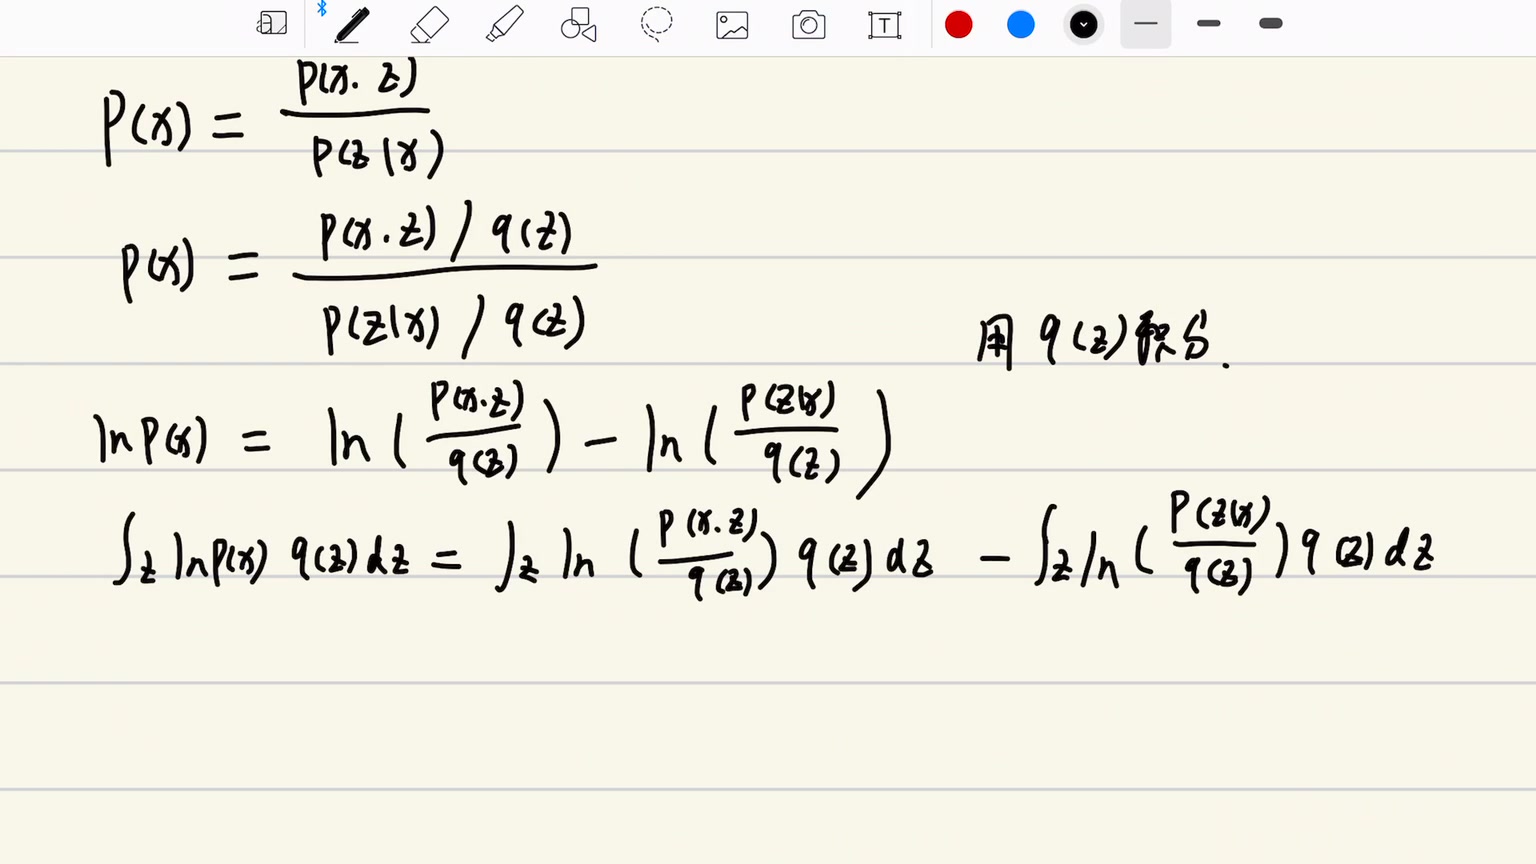 P(x) = p(x.z) / p(z|x)
p(x) = p(x.z) / q(z) / p(z|x) / q(z)
用 q(z) 积分.
ln p(x) = ln( p(x.z) / q(z) ) - ln( p(z|x) / q(z) )
∫z ln p(x) q(z) dz = ∫z ln ( p(x.z) / q(z) ) q(z) dz - ∫z ln ( p(z|x) / q(z) ) q(z) dz